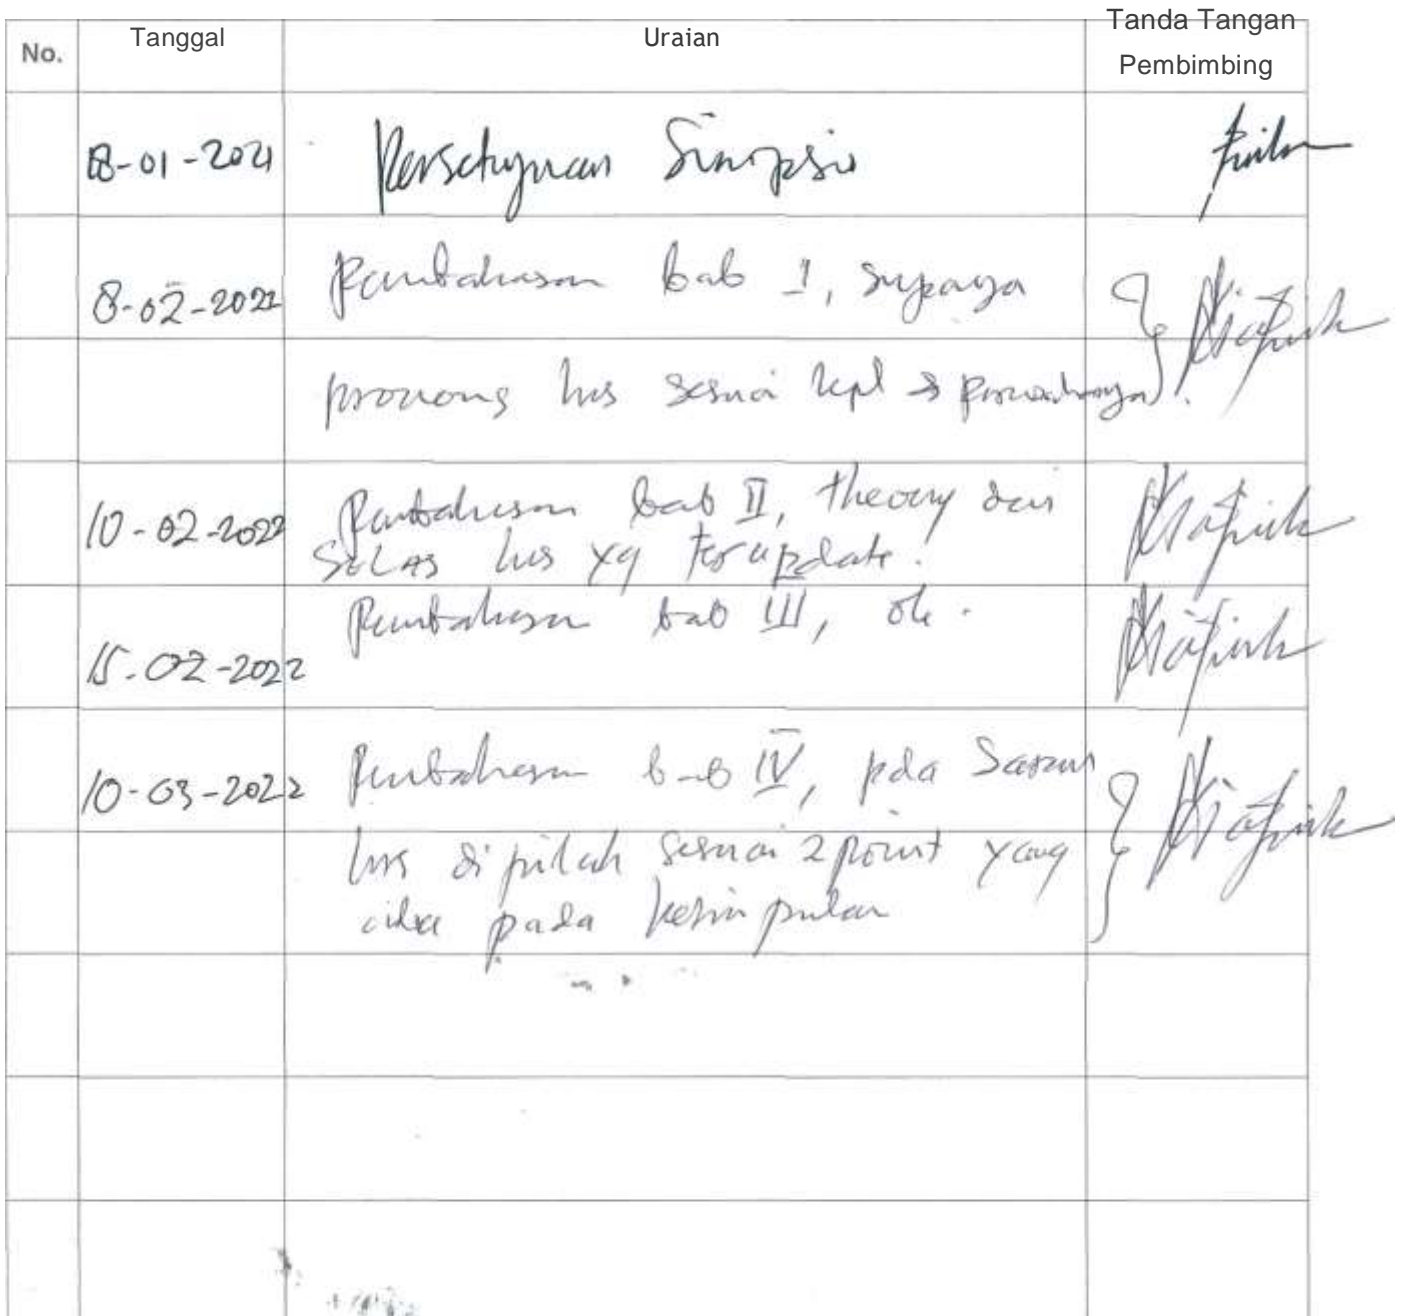 No. Tanggal Uraian Tanda Tangan
Pembimbing
18-01-2021 Persetujuan Sinopsis
8-02-2022 Pembahasan bab I, supaya
hrs sesuai
10-02-2022 Pembahasan bab II, theory dan
hrs yg terupdate.
Pembahasan bab III, ok.
15-02-2022
10-03-2022 Pembahasan bab IV, pda Saran
hrs dipilah sesuai 2 point yang
ada pada kesimpulan